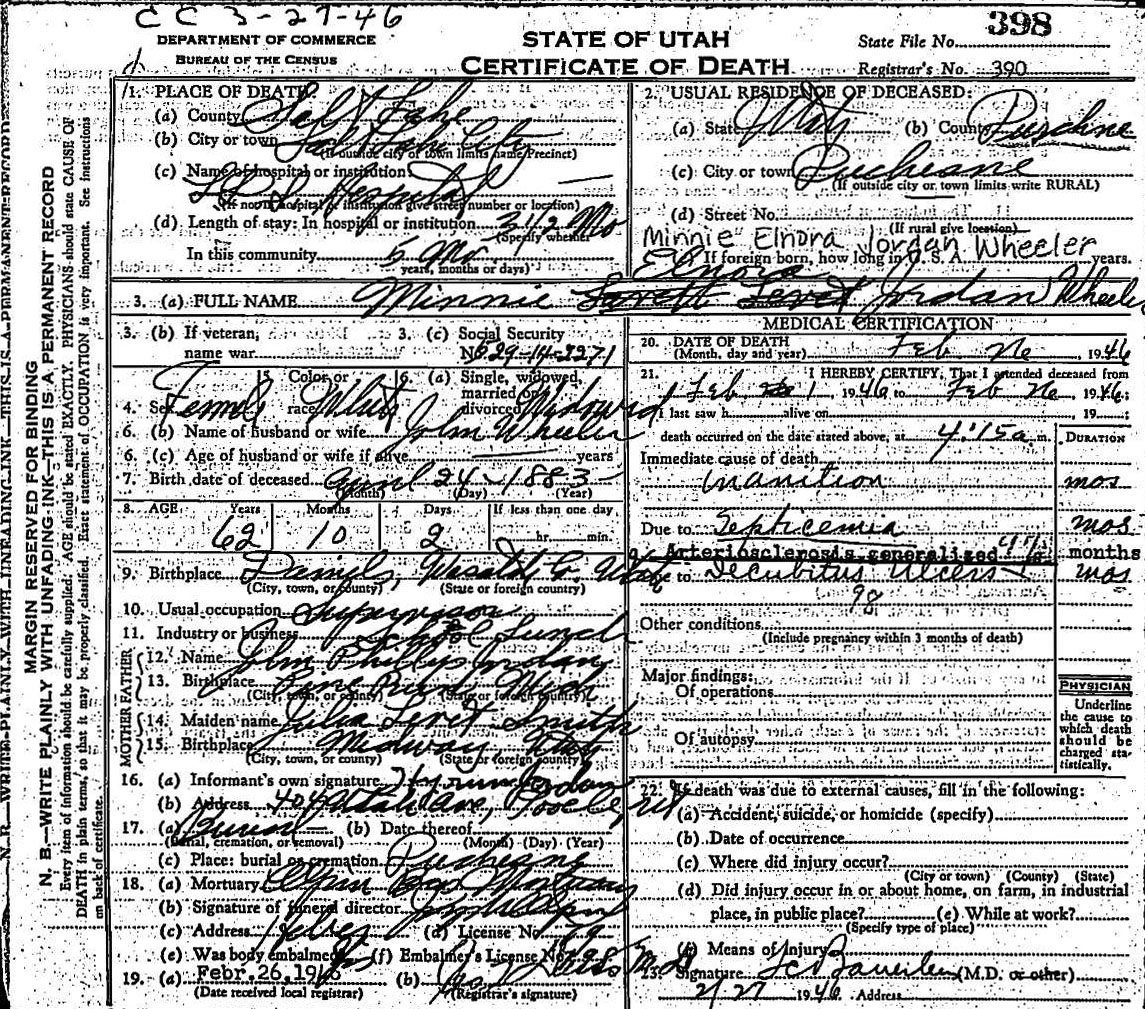 CC 3-27-46
DEPARTMENT OF COMMERCE
BUREAU OF THE CENSUS
STATE OF UTAH
CERTIFICATE OF DEATH
State File No. 398
Registrar's No. 390
MARGIN RESERVED FOR BINDING
N. B.—WRITE PLAINLY WITH UNFADING INK—THIS IS A PERMANENT RECORD
Every item of information should be carefully supplied. AGE should be stated EXACTLY. PHYSICIANS should state CAUSE OF
DEATH in plain terms, so that it may be properly classified. Exact statement of OCCUPATION is very important. See Instructions
on back of certificate.
1. PLACE OF DEATH
(a) County Salt Lake
(b) City or town Salt Lake City
(If outside city or town limits name Precinct)
(c) Name of hospital or institution:
L D S Hospital
(If not in hospital or institution give street number or location)
(d) Length of stay: In hospital or institution 3 1/2 Mo
(Specify whether
In this community 5 Mo
years, months or days)
2. USUAL RESIDENCE OF DECEASED:
(a) State Utah (b) County Duchesne
(c) City or town Duchesne
(If outside city or town limits write RURAL)
(d) Street No.
(If rural give location)
Minnie Elnora Jordan Wheeler
If foreign born, how long in U. S. A. years.
Elnora
3. (a) FULL NAME Minnie Levett Jordan Wheeler
3. (b) If veteran, name war
3. (c) Social Security No. 529-14-3271
4. Sex Female 5. Color or race White 6. (a) Single, widowed, married or divorced Widowed
6. (b) Name of husband or wife John Wheeler
6. (c) Age of husband or wife if alive years
7. Birth date of deceased April 24 - 1883
(Month) (Day) (Year)
8. AGE Years Months Days If less than one day
62 10 2 hr. min.
9. Birthplace Daniels, Wasatch C. Utah
(City, town, or county) (State or foreign country)
10. Usual occupation Supervisor
11. Industry or business School Lunch
FATHER
12. Name John Phillips Jordan
13. Birthplace
(City, town, or county) (State or foreign country)
MOTHER
14. Maiden name Julia Levet Smith
15. Birthplace Midway, Utah
(City, town, or county) (State or foreign country)
16. (a) Informant's own signature Jordan
(b) Address 404 Utah Ave, Tooele, Ut
17. (a) Burial (b) Date thereof
(Burial, cremation, or removal) (Month) (Day) (Year)
(c) Place: burial or cremation Duchesne
18. (a) Mortuary Olpin Bros Mortuary
(b) Signature of funeral director
(c) Address Heber (d) License No. 79
(e) Was body embalmed Yes (f) Embalmer's License No.
19. (a) Febr. 26, 1946 (b)
(Date received local registrar) (Registrar's signature)
MEDICAL CERTIFICATION
20. DATE OF DEATH
(Month, day and year) Feb 26, 1946
21. I HEREBY CERTIFY, That I attended deceased from
Feb 1, 1946 to Feb 26, 1946;
I last saw h alive on 19
death occurred on the date stated above, at 4:15 a m. DURATION
Immediate cause of death
inanition mos
Due to Septicemia mos
Arteriosclerosis generalized months
Due to Decubitus Ulcers mos
98
Other conditions
(Include pregnancy within 3 months of death)
Major findings:
Of operations
Of autopsy
PHYSICIAN
Underline
the cause to
which death
should be
charged sta-
tistically.
22. If death was due to external causes, fill in the following:
(a) Accident, suicide, or homicide (specify)
(b) Date of occurrence
(c) Where did injury occur?
(City or town) (County) (State)
(d) Did injury occur in or about home, on farm, in industrial
place, in public place? (e) While at work?
(Specify type of place)
(f) Means of Injury
23. Signature (M.D. or other)
2/27 1946 Address